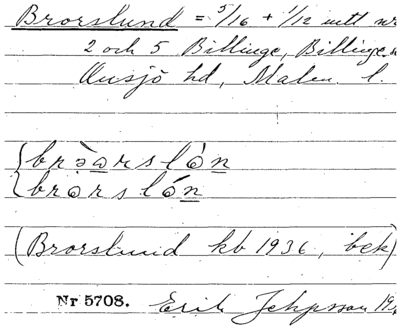 Brorslund = 5/16 + 1/12 mtl nr
2 och 5 Billinge, Billinge
Onsjö hd, Malm. l.
{brə̀arslón
{brorslón
(Brorslund kb 1936, bek)
Nr 5708. Erik Jeppsson 19